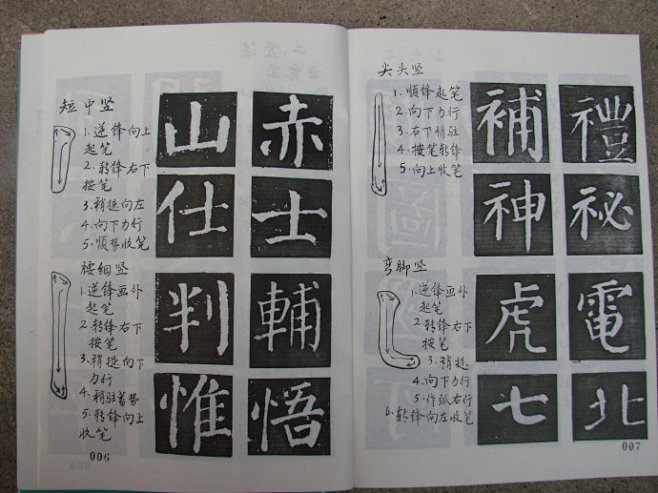 短中竖
1.逆锋向上
起笔
2.转锋右下
按笔
3.稍提向左
4.向下力行
5.顺势收笔
山 赤
仕 士
腰细竖
1.逆锋画外
起笔
2.转锋右下
按笔
3.稍提向下
力行
4.稍驻蓄势
5.转锋向上
收笔
判 輔
惟 悟
006
尖头竖
1.顺锋起笔
2.向下力行
3.右下稍驻
4.按笔转锋
5.向上收笔
補 禮
神 祕
弯脚竖
1.逆锋画外
起笔
2.转锋右下
按笔
3.稍提
4.向下力行
5.作弧右行
6.转锋向左收笔
虎 電
七 北
007